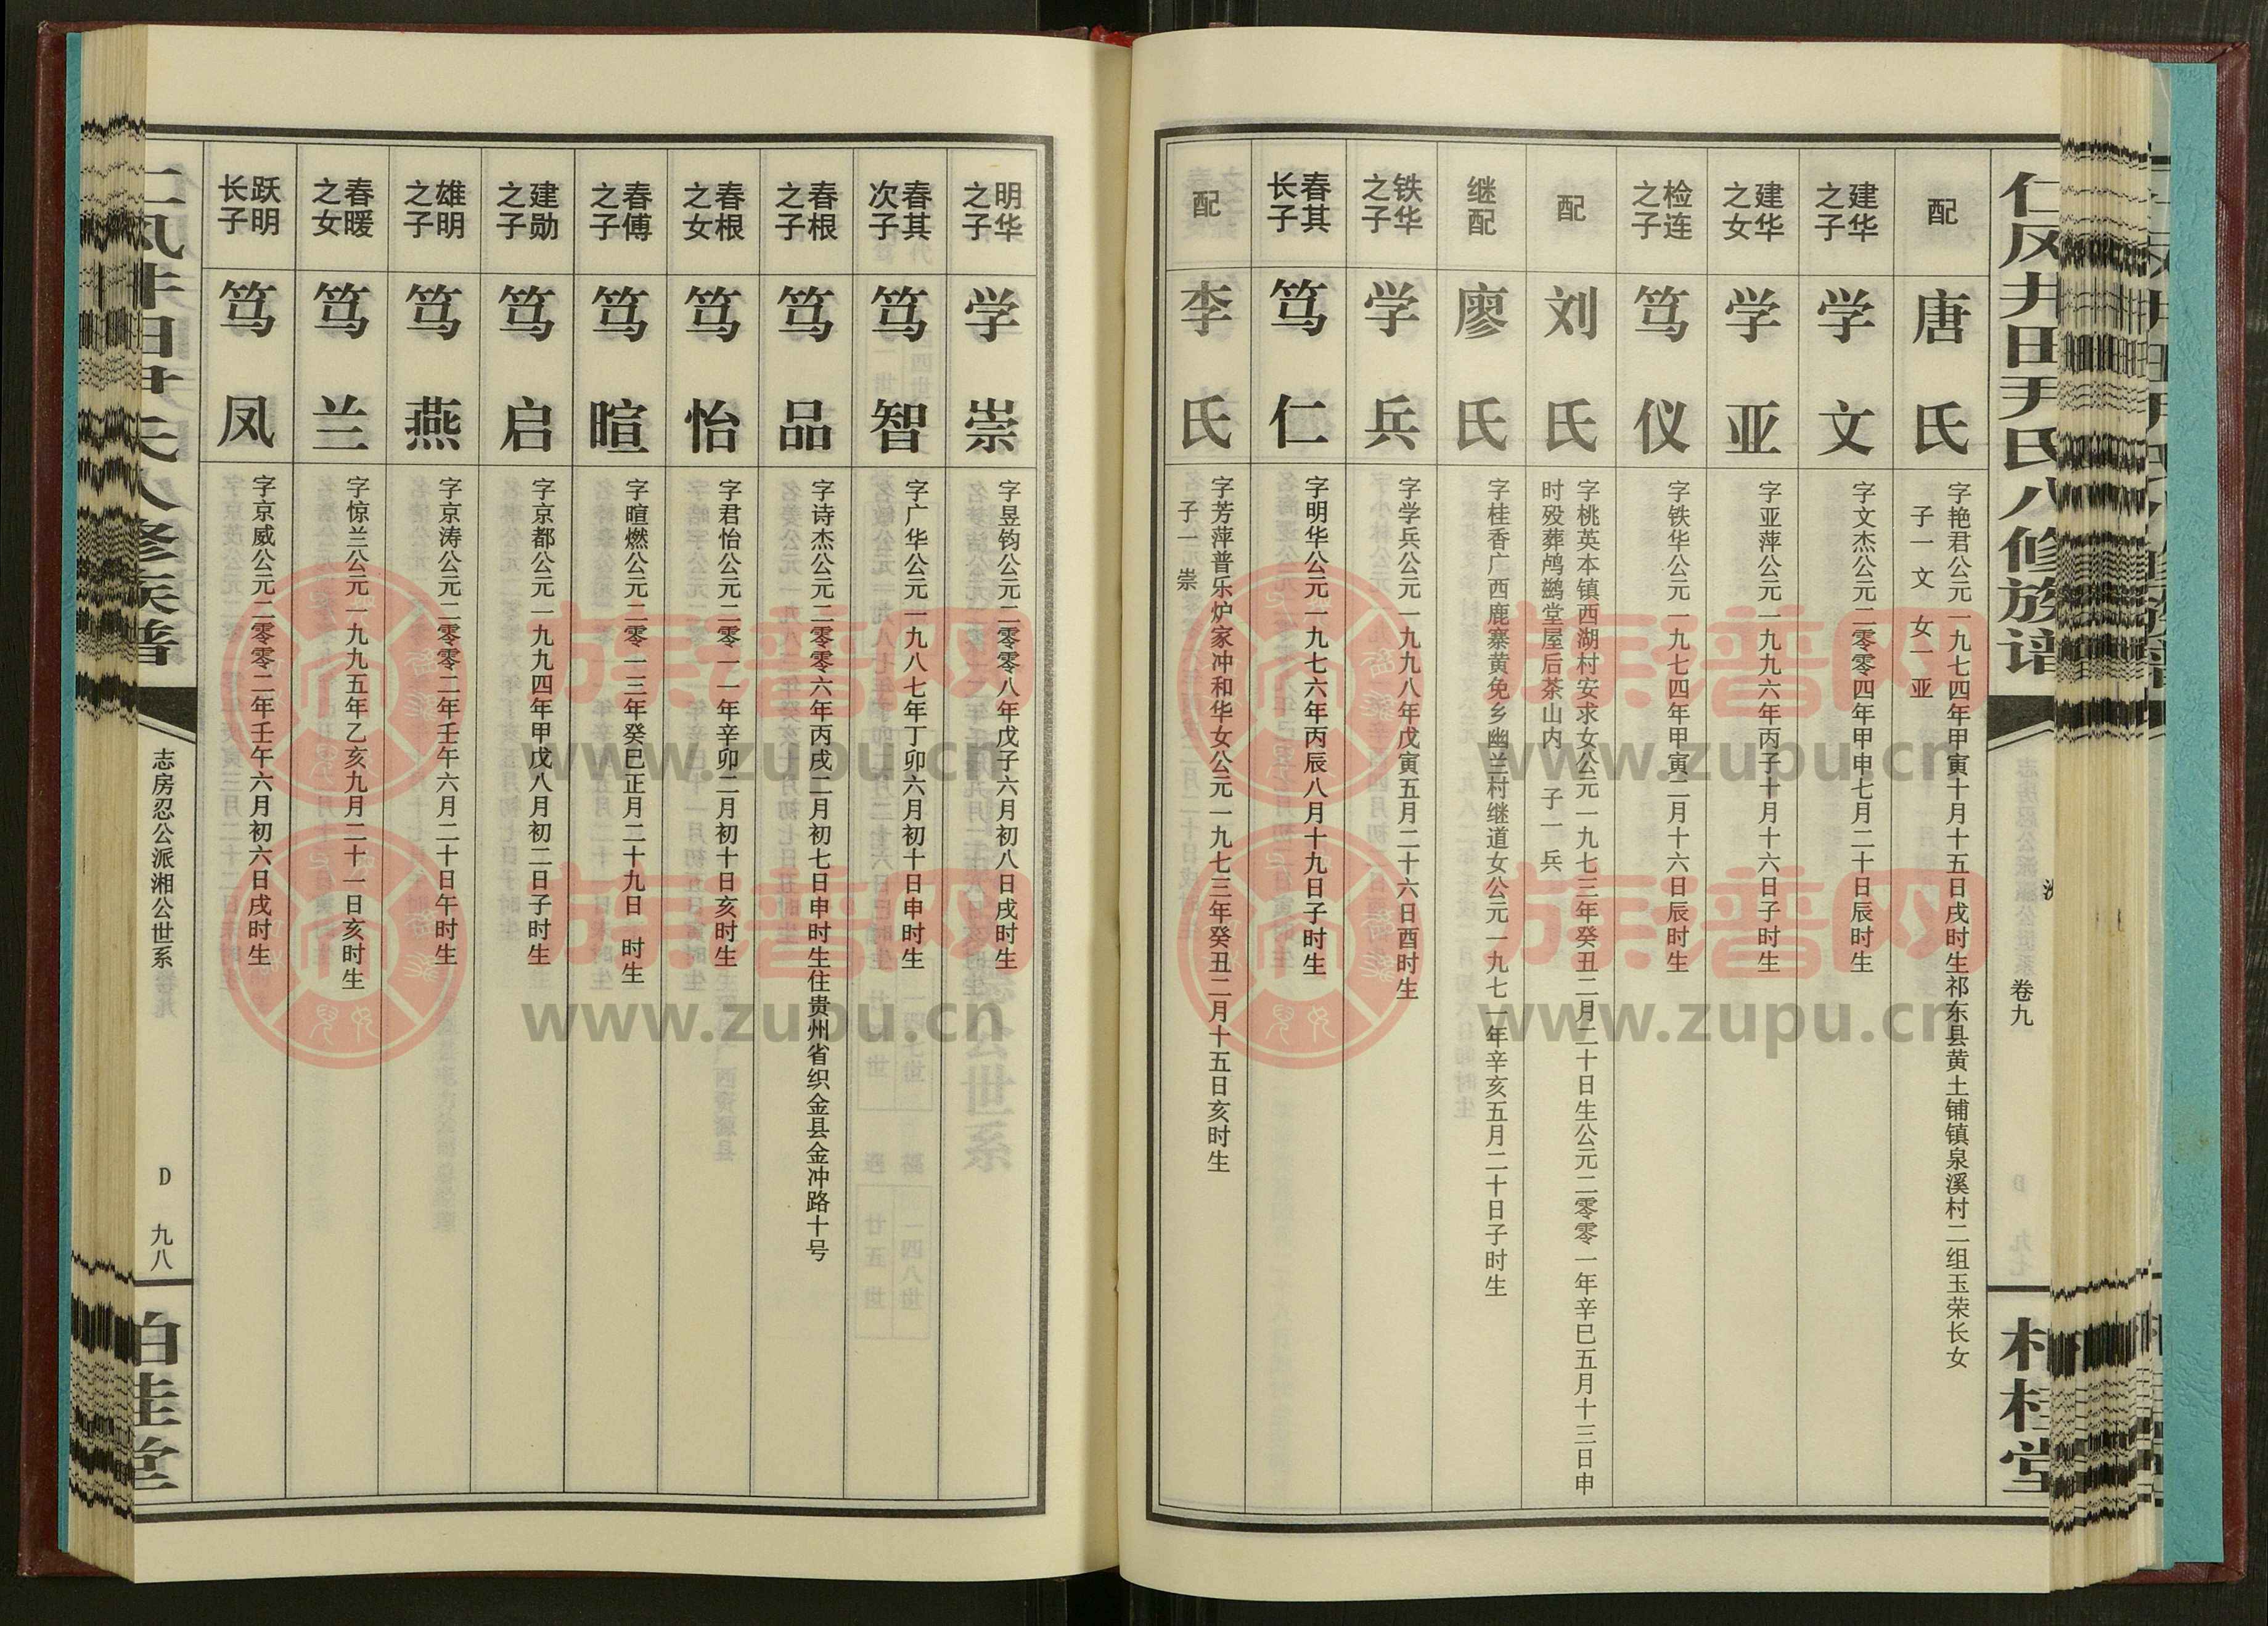 仁风井田尹氏八修族谱
卷九
桂堂
配
唐氏
字艳君公元一九七四年甲寅十月十五日戌时生祁东县黄土铺镇泉溪村二组玉荣长女
子一 文 女一 亚
建华之子
学文
字文杰公元二零零四年甲申七月二十日辰时生
建华之女
学亚
字亚萍公元一九九六年丙子十月十六日子时生
检连之子
笃仪
字铁华公元一九七四年甲寅二月十六日辰时生
配
刘氏
字桃英本镇西湖村安求女公元一九七三年癸丑二月二十日生公元二零零一年辛巳五月十三日申
时殁葬鸬鹚堂屋后茶山内 子一 兵
继配
廖氏
字桂香广西鹿寨黄免乡幽兰村继道女公元一九七一年辛亥五月二十日子时生
铁华之子
学兵
字学兵公元一九九八年戊寅五月二十六日酉时生
春其长子
笃仁
字明华公元一九七六年丙辰八月十九日子时生
配
李氏
字芳萍普乐炉家冲和华女公元一九七三年癸丑二月十五日亥时生
子一 崇
明华之子
学崇
字昱钧公元二零零八年戊子六月初八日戌时生
春其次子
笃智
字广华公元一九八七年丁卯六月初十日申时生
春根之子
笃品
字诗杰公元二零零六年丙戌二月初七日申时生住贵州省织金县金冲路十号
春根之女
笃怡
字君怡公元二零一一年辛卯二月初十日亥时生
春傅之子
笃暄
字暄燃公元二零一三年癸巳正月二十九日 时生
建勋之子
笃启
字京都公元一九九四年甲戊八月初二日子时生
雄明之子
笃燕
字京涛公元二零零二年壬午六月二十日午时生
春暖之女
笃兰
字惊兰公元一九九五年乙亥九月二十一日亥时生
跃明长子
笃凤
字京威公元二零零二年壬午六月初六日戌时生
志房忍公派湘公世系
D 九八
桂堂
族谱网
www.zupu.cn
族谱网
www.zupu.cn
族谱网
www.zupu.cn
族谱网
www.zupu.cn